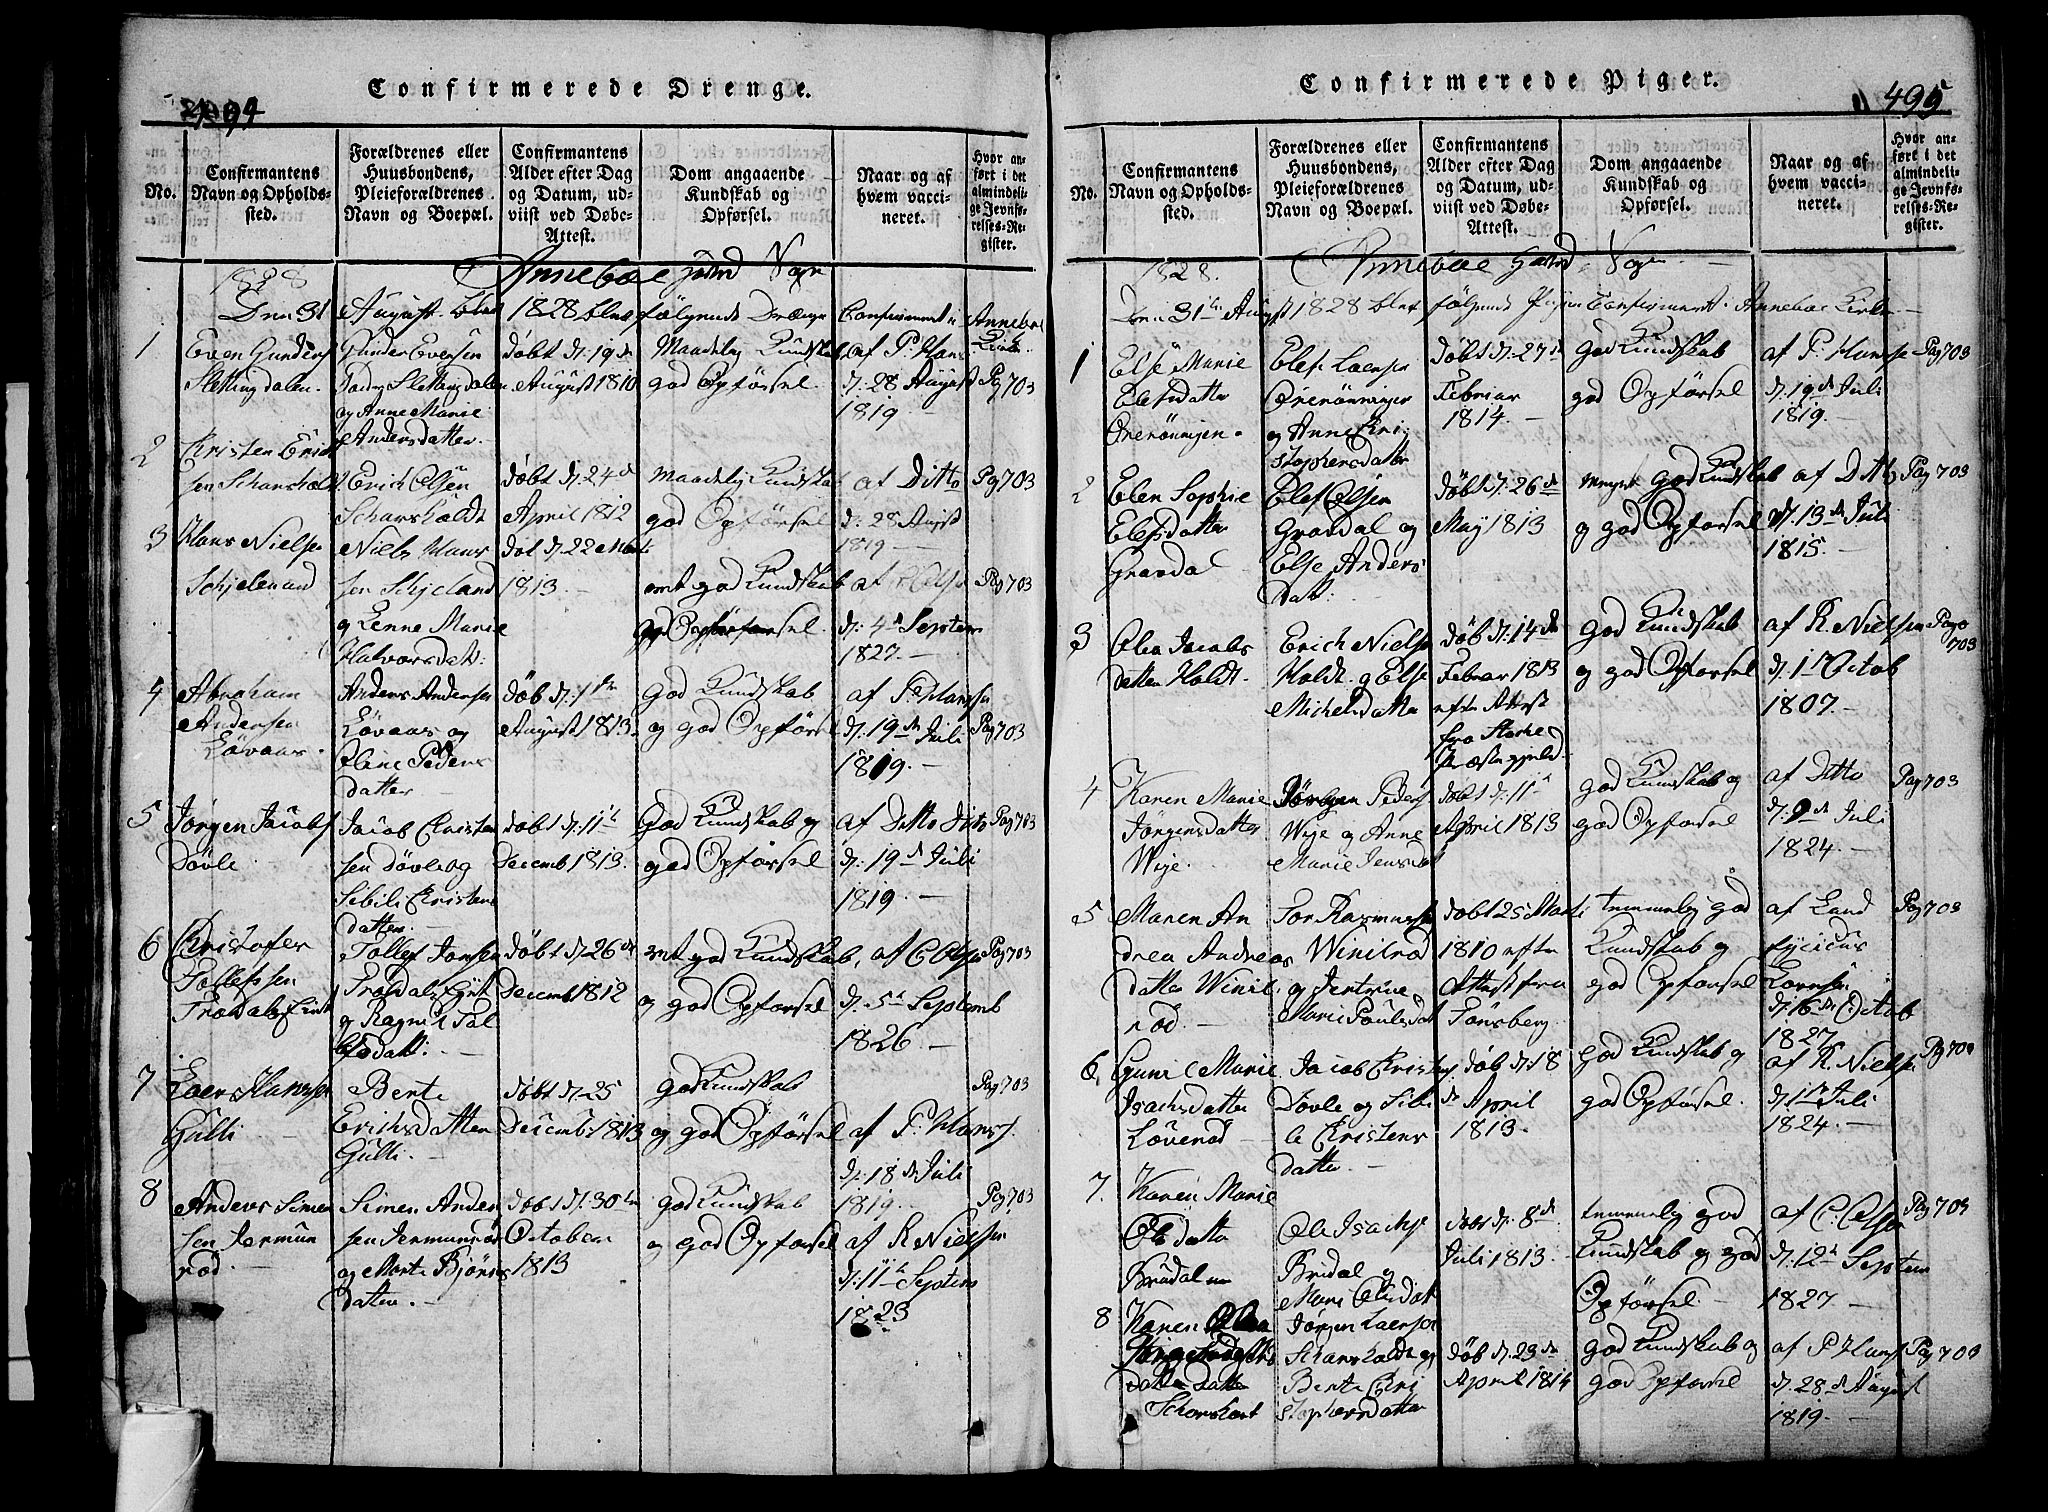 494
Confirmerede Drenge.
No.
Confirmantens
Navn og Opholds-
sted.
Forældrenes eller
Huusbondens,
Pleieforældrenes
Navn og Boepæl.
Confirmantens
Alder efter Dag
og Datum, ud-
viist ved Døbe-
Attest.
Dom angaaende
Kundskab og
Opførsel.
Naar og af
hvem vacci-
neret.
Hvor an-
ført i det
almindeli-
ge Jevnfø-
relses-Re-
gister.
1828 Annebøe Sogn
Den 31 August 1828 blev følgende Drænge Confirmeret
1
Even Gunders
Slettingdalen.
Gunder Evensen
Slettingdalen
og Anne Marie
Andersdatter.
Døbt d. 19de
August 1810
Maadelig Kundskab
god Opførsel.
af P. Hans
d. 28 August
1819
Pag 703
2
Christen Erich
sen Schansholdt.
Erich Olsen
Schansholdt
Døbt d. 24de
April 1812
Maadelig Kundskab
god Opførsel
af Ditto
d. 28 August
1819
Pag 703
3
Hans Nielsen
Niels Hans
sen Schjeland
og Lenne Marie
Halvorsdatt:
1813.
god Kundskab
god Opførsel.
d. 4de Septem
1827.
Pag 703
4
Abraham
Andersen
Løvaas.
Anders Andersen
Løvaas og
Peders
datter
Døb d. 11te
August 1813.
god Kundskab
og god Opførsel
af P. Hansen
d. 19de Juli
1819.
Pag 703
5
Jørgen Jacobs
Døvle
Jacob Christen
sen Døvle og
Sibile Christens
datter.
Døbt d. 11te
Decemb 1813.
God Kundskab og
god Opførsel
af Ditto Ditto
d. 19de Juli
1819.
Pag 703
6
Christofer
Tollefsen
Tollef Jonsen
og Ragnil Tol
lefsdatt:
Døbt d. 26de
Decemb 1812
god Kundskab,
og god Opførsel
af C Olsen
d. 5te Septemb
1826
Pag 703
7
Laers Hansen
Gulli
Berte
Erichsdatter
Gulli.
Døbt d. 25
Decemb 1813
god Kundskab
og god Opførsel
af P. Hans
d. 18de Juli
1819.
Pag 703
8
Anders Simen
sen Jermun
rød.
Simen Ander
sen Jermunrød
og Marte Bjørns
datter.
Døbt d. 30te
October
1813
god Kundskab
og god Opførsel
af R Nielsen
d. 11te Septem
1823
Pag 703
495
Confirmerede Piger.
No.
Confirmantens
Navn og Opholds-
sted.
Forældrenes eller
Huusbondens,
Pleieforældrenes
Navn og Boepæl.
Confirmantens
Alder efter Dag
og Datum, ud-
viist ved Døbe-
Attest.
Dom angaaende
Kundskab og
Opførsel.
Naar og af
hvem vacci-
neret.
Hvor an-
ført i det
almindeli-
ge Jevnfø-
relses-Re-
gister.
1828. Annebøe Sogn
Den 31te August 1828 blev følgende Piger Confirmeret Annebøe Kirke
1
Else Marie
Elefsdatter
Elef Laersen
og Anne Chri
stophersdatter
Døbt d. 27de
Februar
1814.
god Kundskab
god Opførsel
af P. Hansen
d. 19de Juli
1819.
Pag 703
2
Elen Sophie
Elefsdatter
Gravdal
Elef Olsen
Gravdal og
Else Anders
datt:
Døbt d. 26de
May 1813
meget god Kundskab
og god Opførsel
af Ditto
d. 13de Juli
1815.
Pag 703
3
Olea Jacobs
datter Holdt.
Erich Nielsen
Holdt og Else
Michelsdatter
Døb d. 14de
Februar 1813
efter Attest
fra
Præstegjeld
god Kundskab
og god Opførsel
af R. Nielsen
d. 1te Octob
1807.
Pag
703
4
Karen Marie
Jørgensdatter
Wije.
Jørgen Peders
Wije og Anne
Marie Jensdat
Døbt d. 11te
April 1813
god Kundskab og
god Opførsel
af Ditto
Juli
1824.
Pag 703
5
Maren An
drea Andreas
datter Winil
rød.
Tor Rasmussen
Winilrød
og Jertrue
Marie Poulsdat
Døbt 25 Marti
1810 efter
Attest fra
Tønsberg.
temmelig god
Kundskab og
god Opførsel
af Land
fysicus
d. 16de Octob
1827.
Pag 703
6
Gunil Marie
Isachsdatter
Løverød
Jacob Christens
Døvle og Sibi
le Christens
datter.
Døb d. 18
de April
1813.
god Kundskab og
god Opførsel.
af R. Nielsen
d. 1te Juli
1824.
7.
Karen Marie
Ols datter
Ole Isachs
Bridal og
Marie Olsdatt
Døbt d. 8de
Juli 1813.
temmelig god
Kundskab og god
Opførsel.
af C. Olsen
d. 12te Septem
1827
Pag 703
8
Karen
datter
Schanshaat
Jørgen Laersen
Schansholdt og
Berte Chri
stophersdatter
Døb d. 23de
April 1814
god Kundskab og
god Opførsel
af P Hans
d. 28de August
1819.
Pag 703